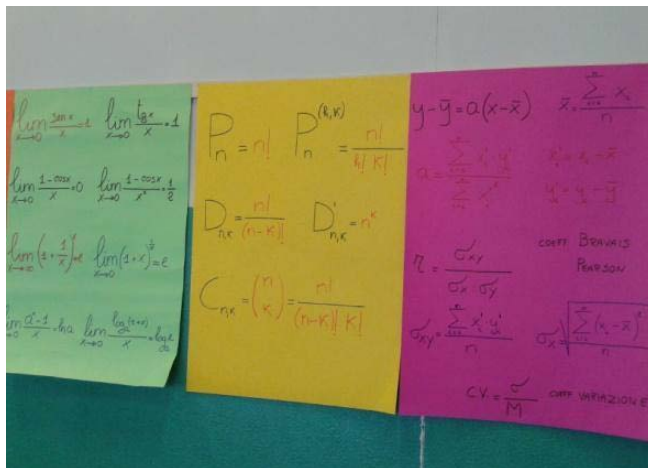 lim x→0 sen x/x = 1 lim x→0 tg x/x = 1
lim x→0 1-cosx/x = 0 lim x→0 1-cosx/x² = 1/2
lim x→∞ (1+1/x)ˣ = e lim x→0 (1+x)^(1/x) = e
lim x→0 aˣ-1/x = lna lim x→0 logₐ(1+x)/x = logₐe
Pn = n! Pn^(h,k) = n!/h! K!
Dn,k = n!/(n-K)! D'n,k = n^K
Cn,k = (n K) = n!/(n-K)!·K!
y-ȳ = a(x-x̄) x̄ = Σ i=1 n xi/n
a = Σ i=1 n xi'·yi'/Σ i=1 n xi'² xi' = xi-x̄
yi' = yi-ȳ
r = σxy/σx·σy COEFF BRAVAIS
PEARSON
σxy = Σ i=1 n xi'·yi'/n σx = √Σ i=1 n (xi-x̄)²/n
CV = σ/M COEFF VARIAZIONE